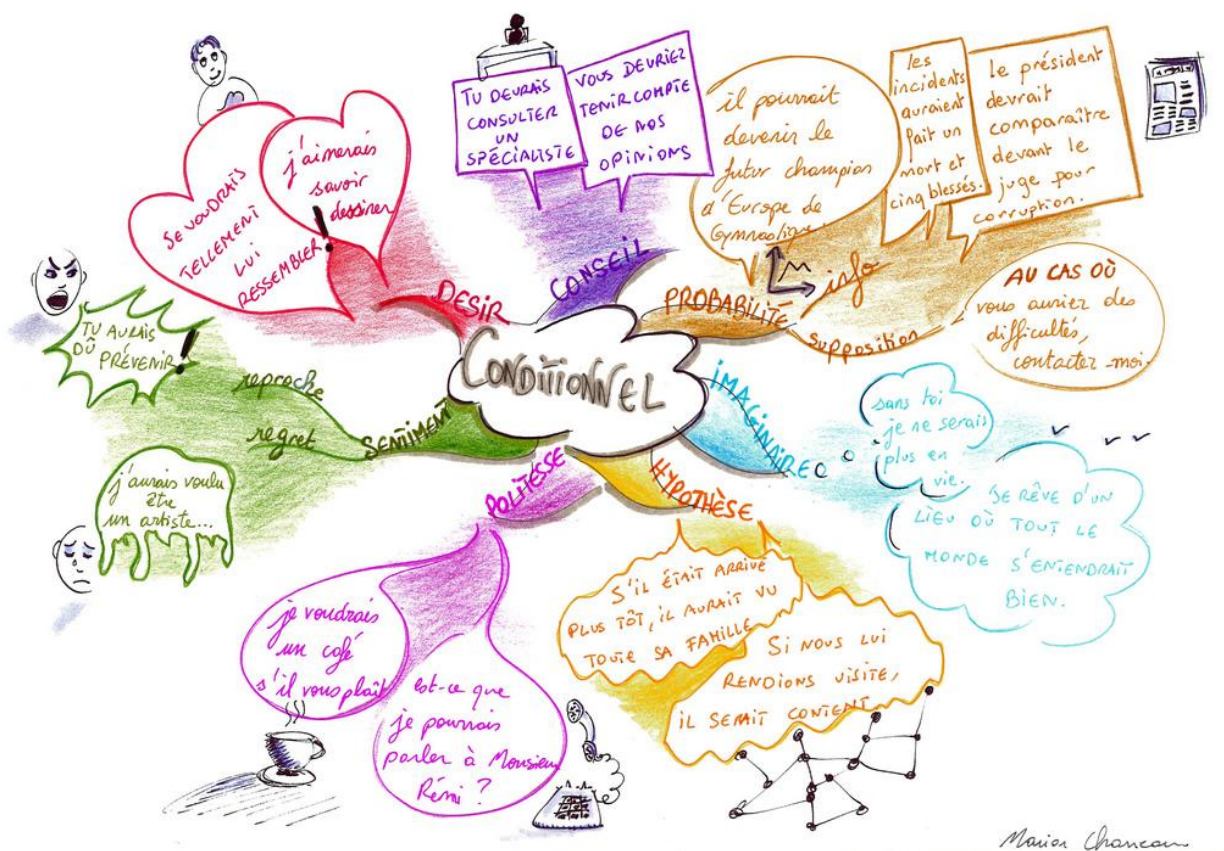 CONDITIONNEL
DESIR
JE VOUDRAIS
TELLEMENT
LUI
RESSEMBLER!
j'aimerais
savoir
dessiner
CONSEIL
TU DEVRAIS
CONSULTER
UN
SPÉCIALISTE
VOUS DEVRIEZ
TENIR COMPTE
DE NOS
OPINIONS
PROBABILITÉ
il pourrait
devenir le
futur champion
d'Europe de
Gymnastique.
info
les
incidents
auraient
fait un
mort et
cinq blessés.
le président
devrait
comparaître
devant le
juge pour
corruption.
supposition
AU CAS OÙ
vous auriez des
difficultés,
contactez-moi.
IMAGINAIRE
sans toi
je ne serais
plus en
vie.
JE RÊVE D'UN
LIEU OÙ TOUT LE
MONDE S'ENTENDRAIT
BIEN.
HYPOTHÈSE
S'IL ÉTAIT ARRIVÉ
PLUS TÔT, IL AURAIT VU
TOUTE SA FAMILLE
SI NOUS LUI
RENDIONS VISITE,
IL SERAIT CONTENT
POLITESSE
je voudrais
un café
s'il vous plaît
est-ce que
je pourrais
parler à Monsieur
Rémi ?
SENTIMENT
reproche
TU AURAIS
DÛ PRÉVENIR!
regret
j'aurais voulu
être
un artiste...